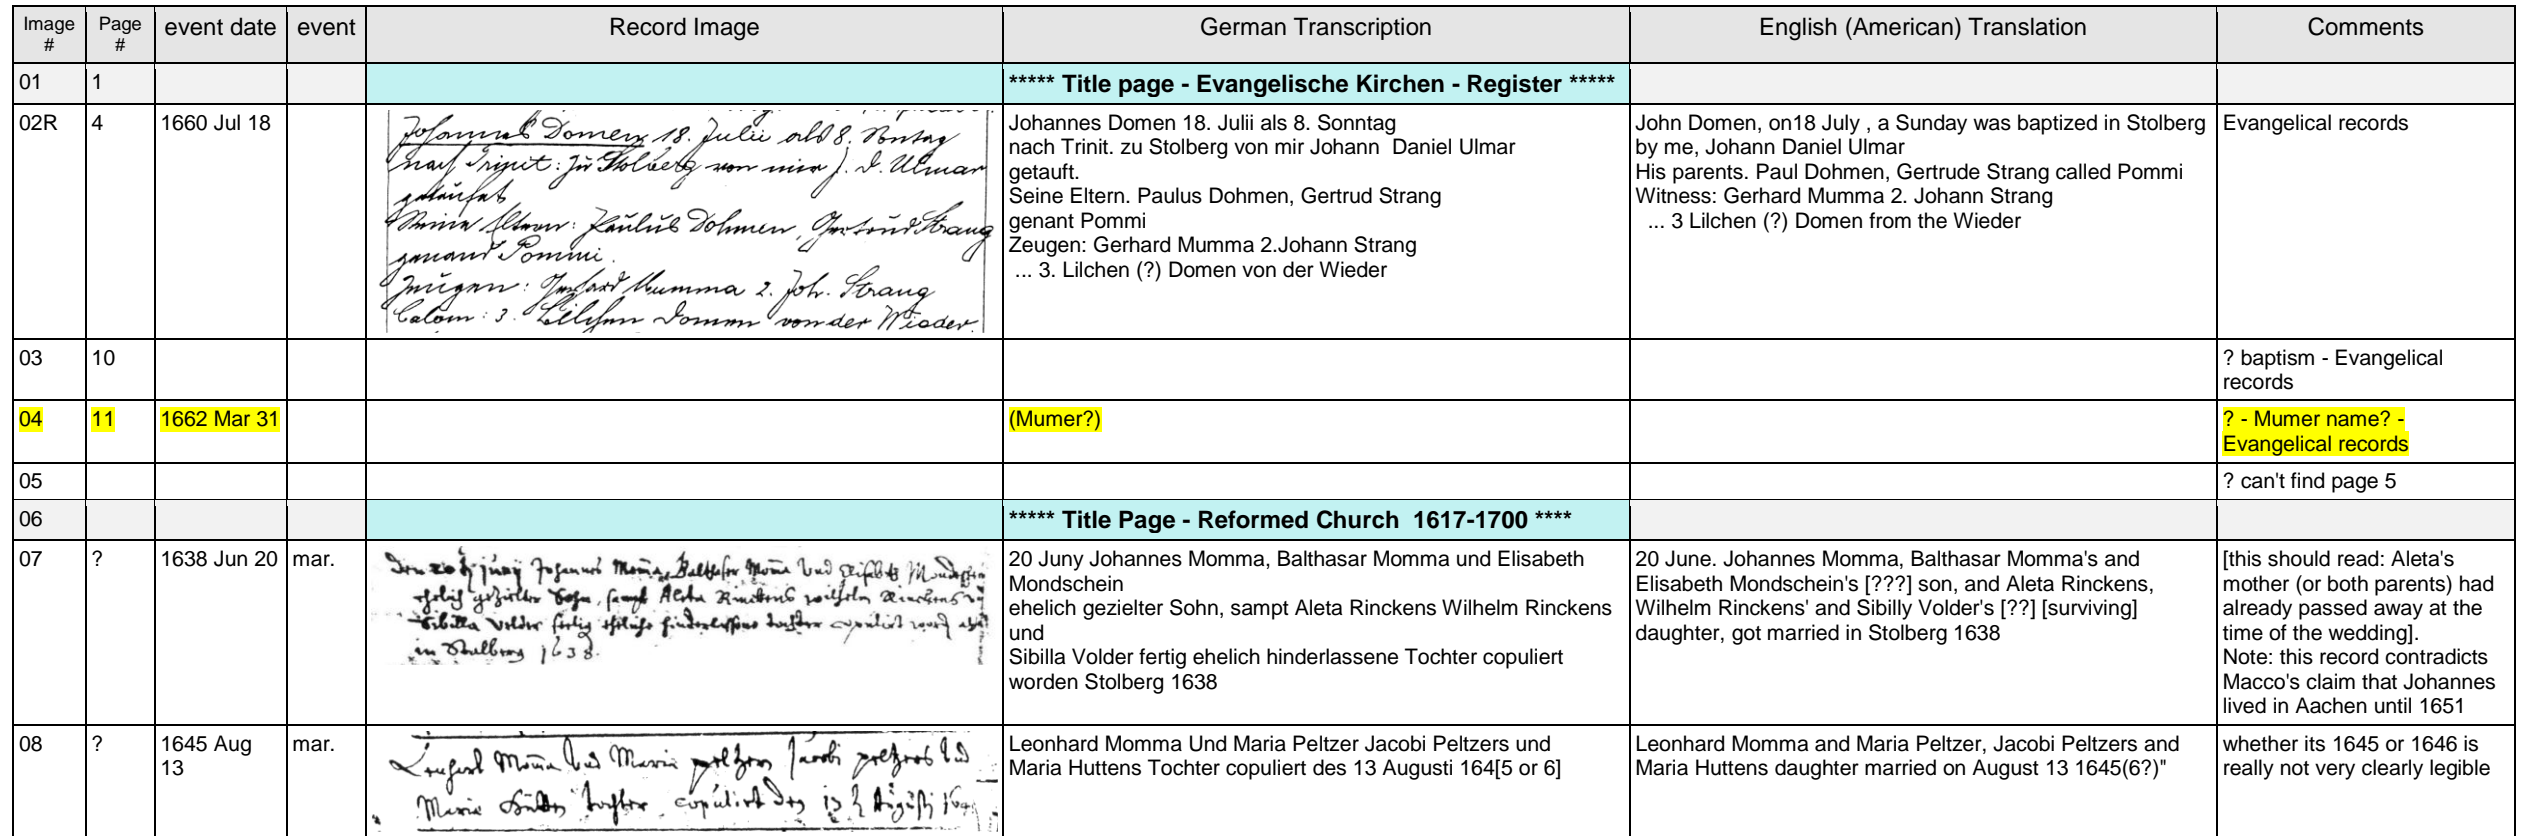 Image # Page # event date event Record Image German Transcription English (American) Translation Comments
01 1 ***** Title page - Evangelische Kirchen - Register *****
02R 4 1660 Jul 18
Johannes Domen 18. Julii als 8. Sontag
nach Trinit: zu Stolberg von mir J. D. Ulmar
getaufet
Seine Eltern: Paulus Dohmen, Gertrud Strang
genand Pommi.
Zeugen: Gerhard Mumma 2. Joh. Strang
3. Domen von der Wieder
Johannes Domen 18. Julii als 8. Sonntag
nach Trinit. zu Stolberg von mir Johann Daniel Ulmar
getauft.
Seine Eltern. Paulus Dohmen, Gertrud Strang
genant Pommi
Zeugen: Gerhard Mumma 2.Johann Strang
... 3. Lilchen (?) Domen von der Wieder
John Domen, on18 July , a Sunday was baptized in Stolberg
by me, Johann Daniel Ulmar
His parents. Paul Dohmen, Gertrude Strang called Pommi
Witness: Gerhard Mumma 2. Johann Strang
... 3 Lilchen (?) Domen from the Wieder
Evangelical records
03 10
? baptism - Evangelical
records
04 11 1662 Mar 31 (Mumer?)
? - Mumer name? -
Evangelical records
05 ? can't find page 5
06 ***** Title Page - Reformed Church 1617-1700 ****
07 ? 1638 Jun 20 mar.
Juny Johannes Moma, Balthasar Moma Und Elisabeth
ehelich gezielter Sohn, sampt Aleta Rinckens wilhelm Rinckens
Sibilla Volder ehliche hinderlassene tochter copulirt
in Stalberg 1638.
20 Juny Johannes Momma, Balthasar Momma und Elisabeth
Mondschein
ehelich gezielter Sohn, sampt Aleta Rinckens Wilhelm Rinckens
und
Sibilla Volder fertig ehelich hinderlassene Tochter copuliert
worden Stolberg 1638
20 June. Johannes Momma, Balthasar Momma's and
Elisabeth Mondschein's [???] son, and Aleta Rinckens,
Wilhelm Rinckens' and Sibilly Volder's [??] [surviving]
daughter, got married in Stolberg 1638
[this should read: Aleta's
mother (or both parents) had
already passed away at the
time of the wedding].
Note: this record contradicts
Macco's claim that Johannes
lived in Aachen until 1651
08 ? 1645 Aug
13
mar.
Moma Und Maria peltzers Jacobi peltzers Und
Maria tochter copulirt den 13 Augusti
Leonhard Momma Und Maria Peltzer Jacobi Peltzers und
Maria Huttens Tochter copuliert des 13 Augusti 164[5 or 6]
Leonhard Momma and Maria Peltzer, Jacobi Peltzers and
Maria Huttens daughter married on August 13 1645(6?)"
whether its 1645 or 1646 is
really not very clearly legible